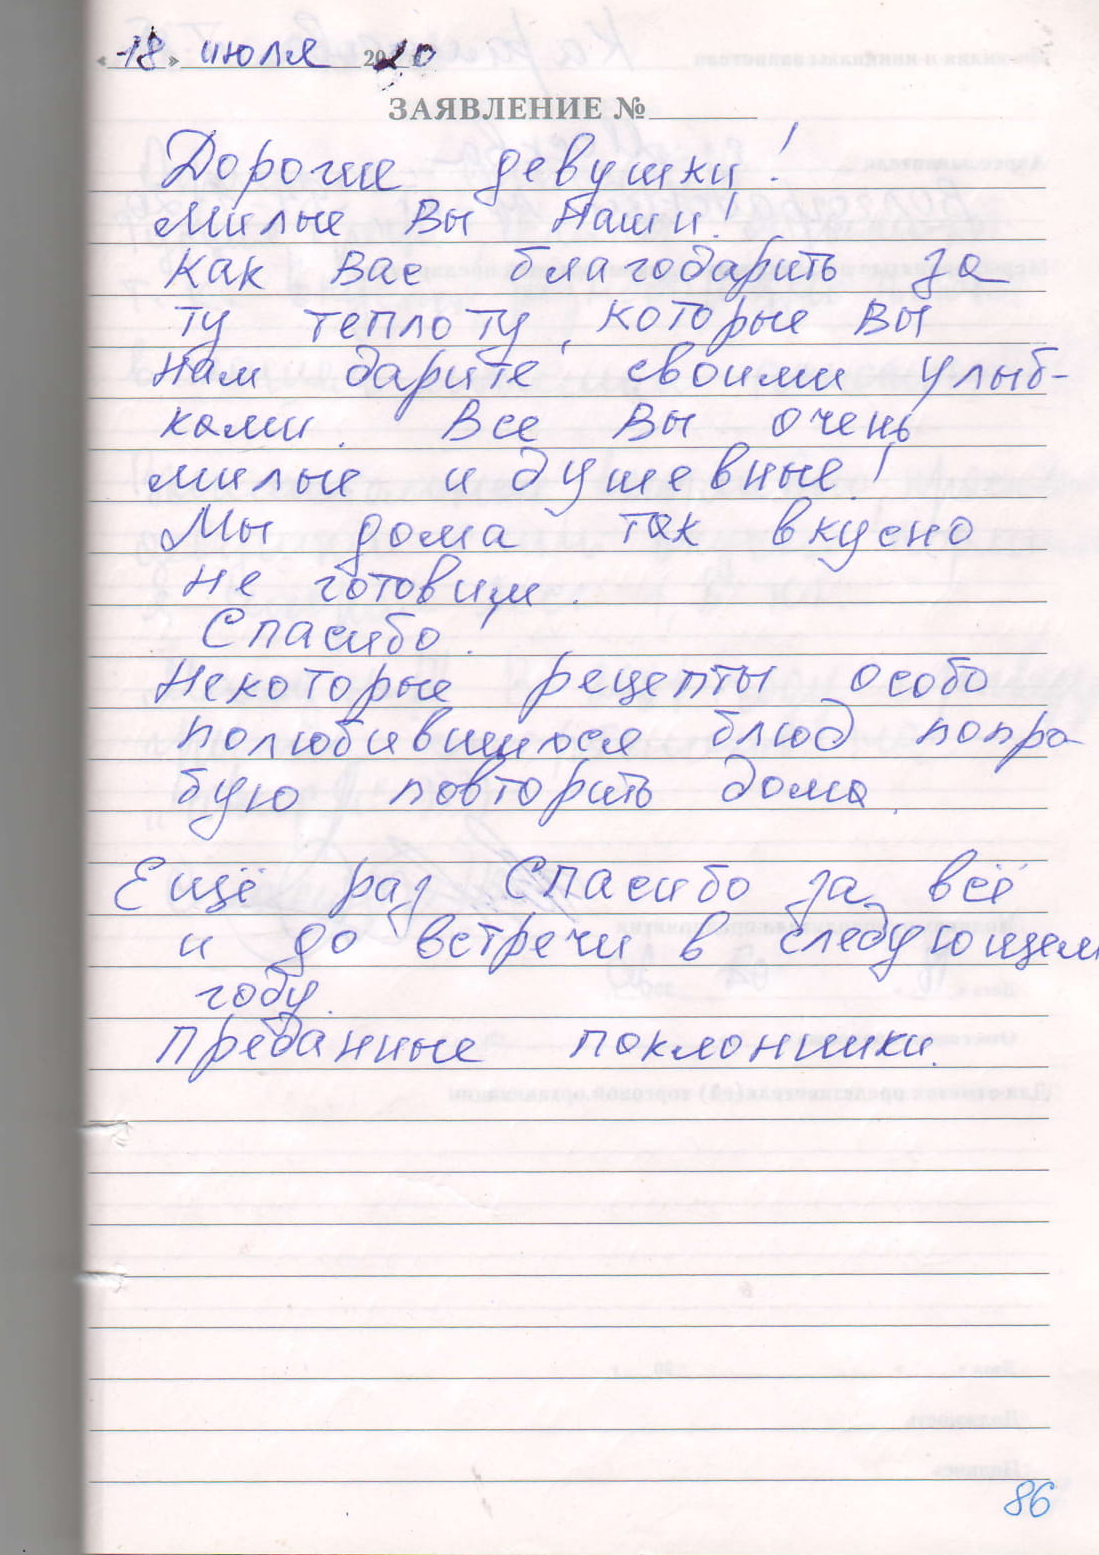 «18» июля 2020
ЗАЯВЛЕНИЕ №
Дорогие девушки!
Милые Вы наши!
Как Вас благодарить за
ту теплоту, которые Вы
нам дарите, своими улыб-
ками. Все Вы очень
милые и душевные!
Мы дома так вкусно
не готовим.
Спасибо!
Некоторые рецепты особо
полюбившихся блюд попро-
бую повторить дома.
Ещё раз Спасибо за всё
и до встречи в следующем
году.
Преданные поклонники.
86